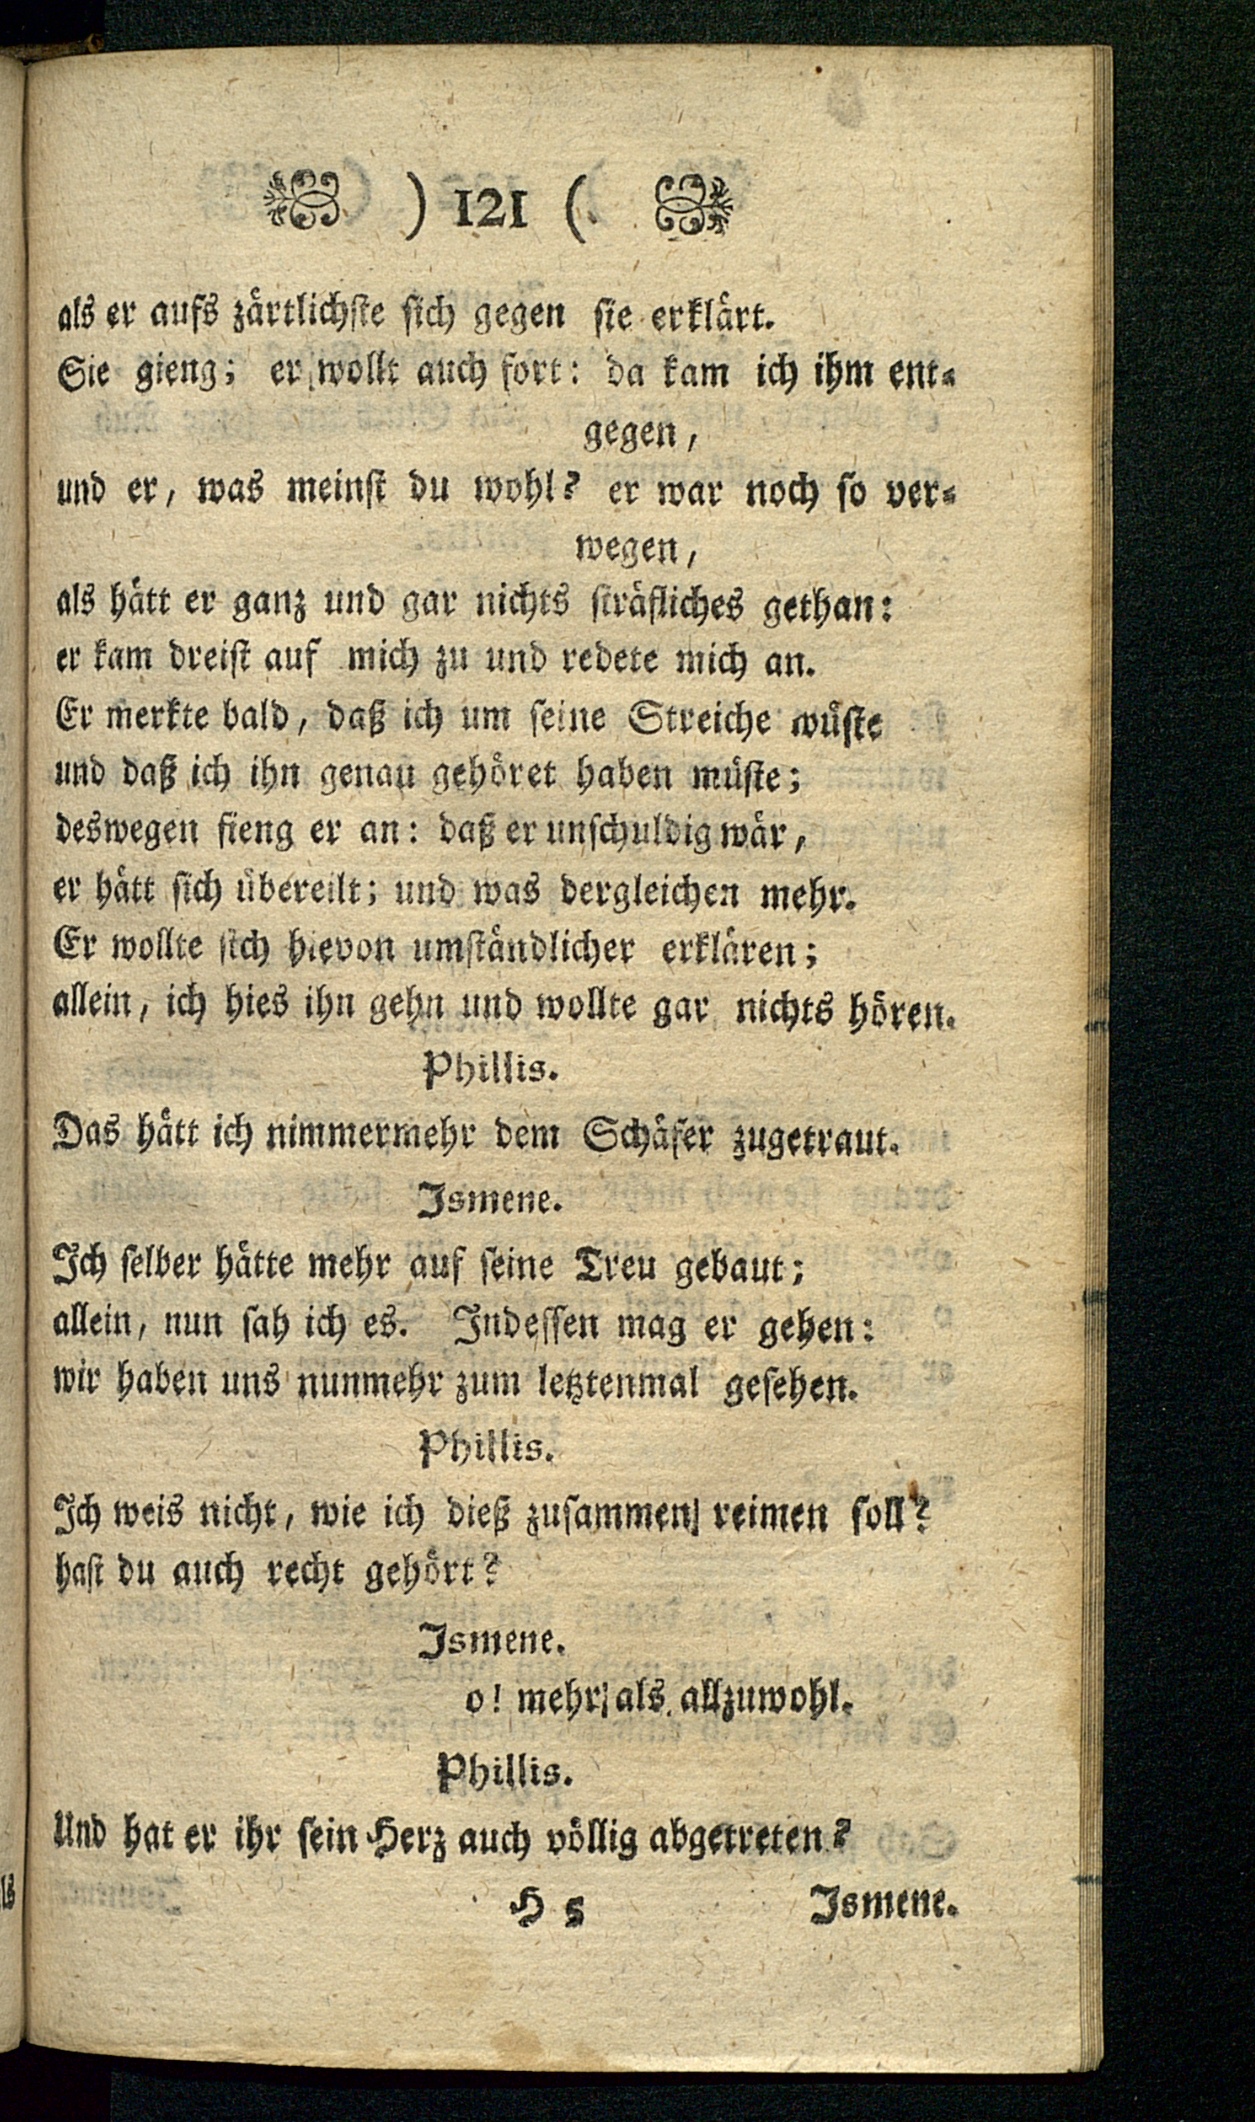 ) 121 (
als er aufs zärtlichste sich gegen sie erklärt.
Sie gieng; er wollt auch fort: da kam ich ihm ent-
gegen,
und er, was meinst du wohl? er war noch so ver-
wegen,
als hätt er ganz und gar nichts sträfliches gethan:
er kam dreist auf mich zu und redete mich an.
Er merkte bald, daß ich um seine Streiche wüste
und daß ich ihn genau gehöret haben müste;
deswegen fieng er an: daß er unschuldig wär,
er hätt sich übereilt; und was dergleichen mehr.
Er wollte sich hievon umständlicher erklären;
allein, ich hies ihn gehn und wollte gar nichts hören.
Phillis.
Das hätt ich nimmermehr dem Schäfer zugetraut.
Ismene.
Ich selber hätte mehr auf seine Treu gebaut;
allein, nun sah ich es. Indessen mag er gehen:
wir haben uns nunmehr zum letztenmal gesehen.
Phillis.
Ich weis nicht, wie ich dieß zusammen reimen soll?
hast du auch recht gehört?
Ismene.
o! mehr als allzuwohl.
Phillis.
Und hat er ihr sein Herz auch völlig abgetreten?
H 5 Ismene.